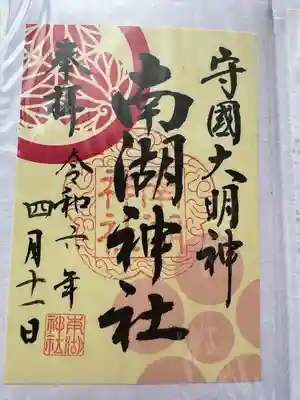 守國大明神
南湖神社
奉拝
令和六年
四月十一日
南湖
神社